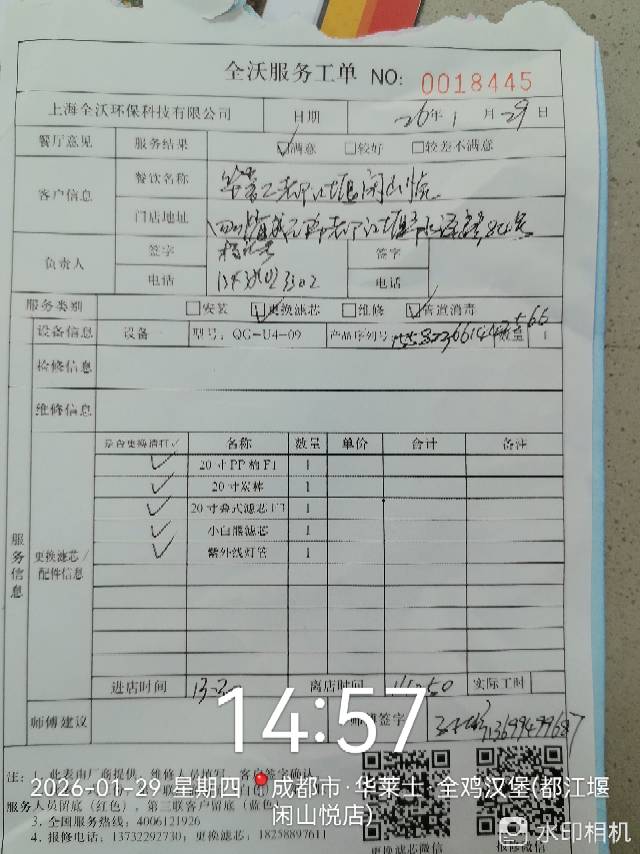 全沃服务工单 NO: 0018445
上海全沃环保科技有限公司 日期 26年1月29日
餐厅意见 服务结果 ☑满意 □较好 □较差不满意
客户信息 餐饮名称 华莱士都江堰闲山悦店
门店地址 四川省成都市都江堰市
负责人 签字 签字
电话 电话
服务类别 □安装 ☑更换滤芯 □维修 ☑管道消毒
设备信息 设备 型号: QG-U4-09 产品序列号 数量 1
检修信息
维修信息
服务信息 更换滤芯/配件信息
是否更换请打✓ 名称 数量 单价 合计 备注
✓ 20寸PP棉F1 1
✓ 20寸炭棒 1
✓ 20寸叠式滤芯 1
✓ 小白熊滤芯 1
✓ 紫外线灯管 1
进店时间 13:30 离店时间 14:50 实际工时
师傅建议 师傅签字 13699499687
14:57
注: 1. 此表由厂商提供, 维修人员填写, 客户签字确认
服务人员留底(红色), 第三联客户留底(蓝色)
3. 全国服务热线: 4006121926
4. 报修电话: 13732292730; 更换滤芯: 18258897611
更换滤芯微信 报修微信
2026-01-29 星期四 成都市·华莱士·全鸡汉堡(都江堰
闲山悦店)
水印相机